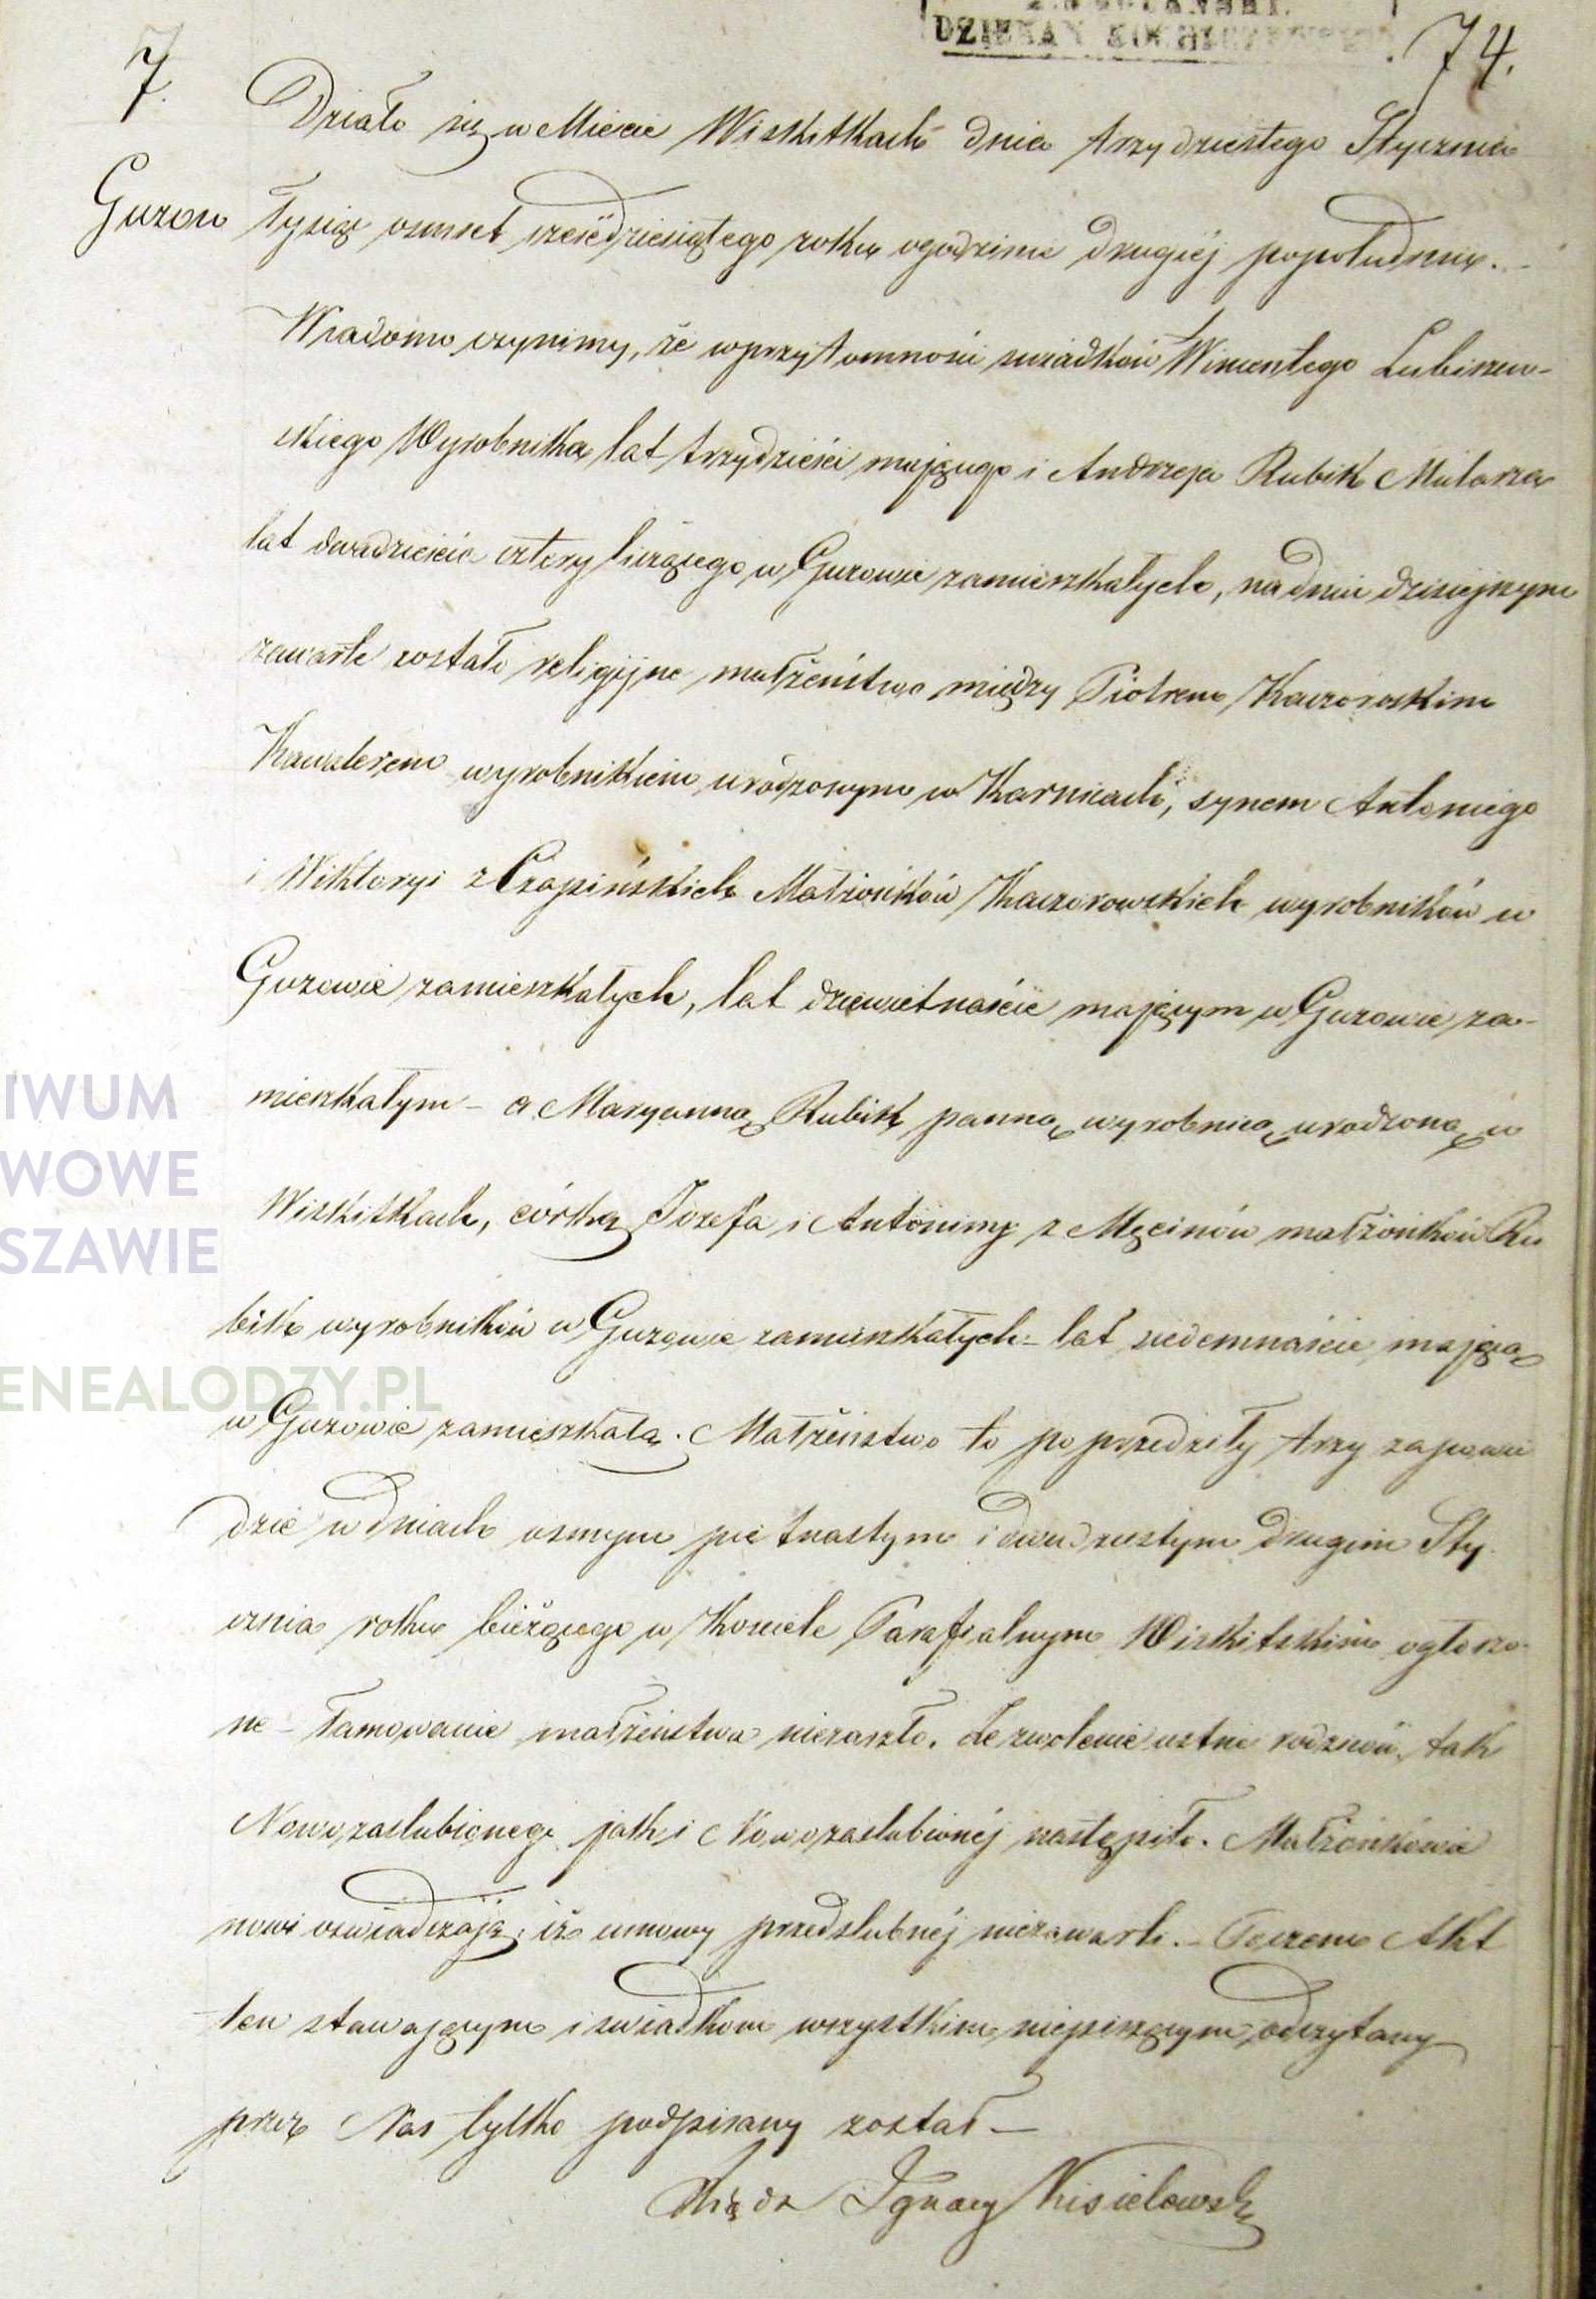 DZIEKAN
74.
7.
Guzow
Działo się w Mieście Wiskitkach dnia trzydziestego Stycznia
Tysiąc osmset sześćdziesiątego roku o godzinie drugiéj popołudniu. -
Wiadomo czynimy, że w przytomności swiadków Wincentego Lubiszew-
skiego Wyrobnika lat trzydzieści mającego i Andrzeja Rubik Mularza
lat dwadzieścia cztery liczącego w Guzowie zamieszkałych, na dniu dzisiejszym
zawarte zostało religijne małżeństwo między Piotrem Kaczoroskim
Kawalerem wyrobnikiem urodzonym w Karnicach, synem Antoniego
i Wiktoryi z Czapińskich Małżonków Kaczorowskich wyrobników w
Guzowie zamieszkałych, lat dziewietnaście mającym w Guzowie za-
mieszkałym - a Maryanną Rubik panną wyrobnicą urodzoną w
Wiskitkach, córką Jozefa i Antoniny z Męcinów małżonków Ru
bik wyrobników w Guzowie zamieszkałych - lat siedemnaście mającą
w Guzowie zamieszkałą. Małżeństwo to poprzedziły trzy zapowie
dzie w dniach osmym pietnastym i dwudziestym drugim Sty
cznia roku bieżącego w Kosciele Parafialnym Wiskitskim ogłoszo-
ne - Tamowanie małżeństwa niezaszło. Zezwolenie ustne rodziców tak
Nowozaslubionego jak i Nowozaslubionéj nastąpiło. Małżonkowie
nowi oswiadczają, iż umowy przedslubnéj niezawarli. - Poczem Akt
ten stawającym i swiadkom wszystkim niepiszącym odczytany
przez Nas tylko podpisany został -
Xiądz Ignacy Kisielowski
IWUM
WOWE
SZAWIE
ENEALODZY.PL